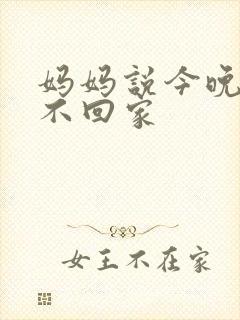 妈妈説今晚
不回家
女王不在家